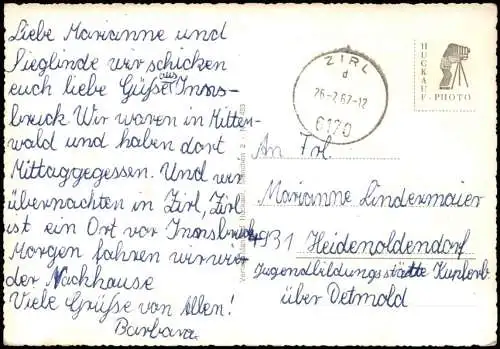 Liebe Marianne und
Sieglinde wir schicken
euch liebe Güße aus Innsbruck
bruck Wir waren in Mitten-
wald und haben dort
Mittaggegessen. Und wir
übernachten in Zirl, Zirl
ist ein Ort vor Innsbruck
Morgen fahren wir wir
der Nachhause
Viele Grüße von Allen!
Barbara
ZIRL
d
26-7.67-12
6170
HUGKAUF-PHOTO
An Frl.
Marianne Lindermaier
4931 Heidenoldendorf
Jugendbildungsstätte Kupferb
über Detmold